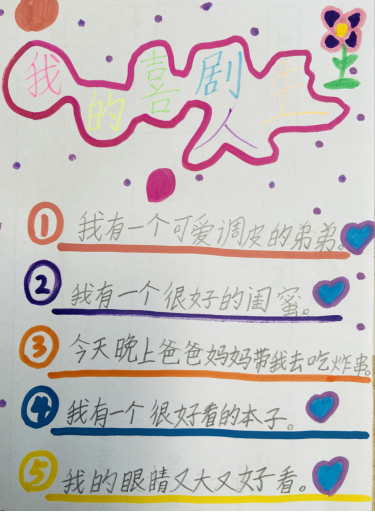 我的喜剧人生
① 我有一个可爱调皮的弟弟。
② 我有一个很好的闺蜜。
③ 今天晚上爸爸妈妈带我去吃炸串。
④ 我有一个很好看的本子。
⑤ 我的眼睛又大又好看。